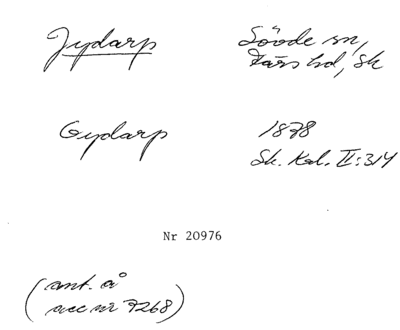 Jydarp Sövde sn,
Färs hd, Sk
Gydarp 1878
Sk. Kal. II:314
Nr 20976
(ant. å
acc nr 7268)